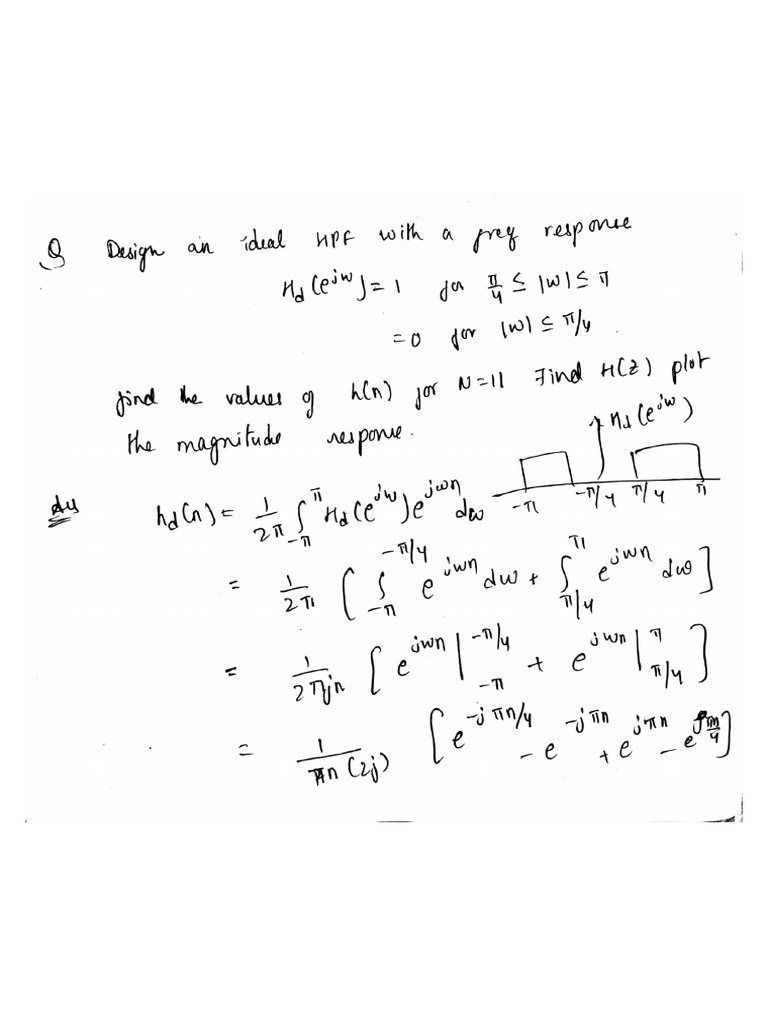 Q Design an ideal HPF with a freq response
H_d(e^{jω}) = 1 for π/4 ≤ |ω| ≤ π
= 0 for |ω| ≤ π/4.
find the values of h(n) for N=11 Find H(Z) plot
the magnitude response.
H_d(e^{jω})
-π -π/4 π/4 π
Ans h_d(n) = 1/2π ∫_{-π}^{π} H_d(e^{jω}) e^{jωn} dω
= 1/2π [ ∫_{-π}^{-π/4} e^{jωn} dω + ∫_{π/4}^{π} e^{jωn} dω ]
= 1/2πjn [ e^{jωn} |_{-π}^{-π/4} + e^{jωn} |_{π/4}^{π} ]
= 1/πn(2j) [ e^{-jπn/4} - e^{-jπn} + e^{jπn} - e^{jπn/4} ]